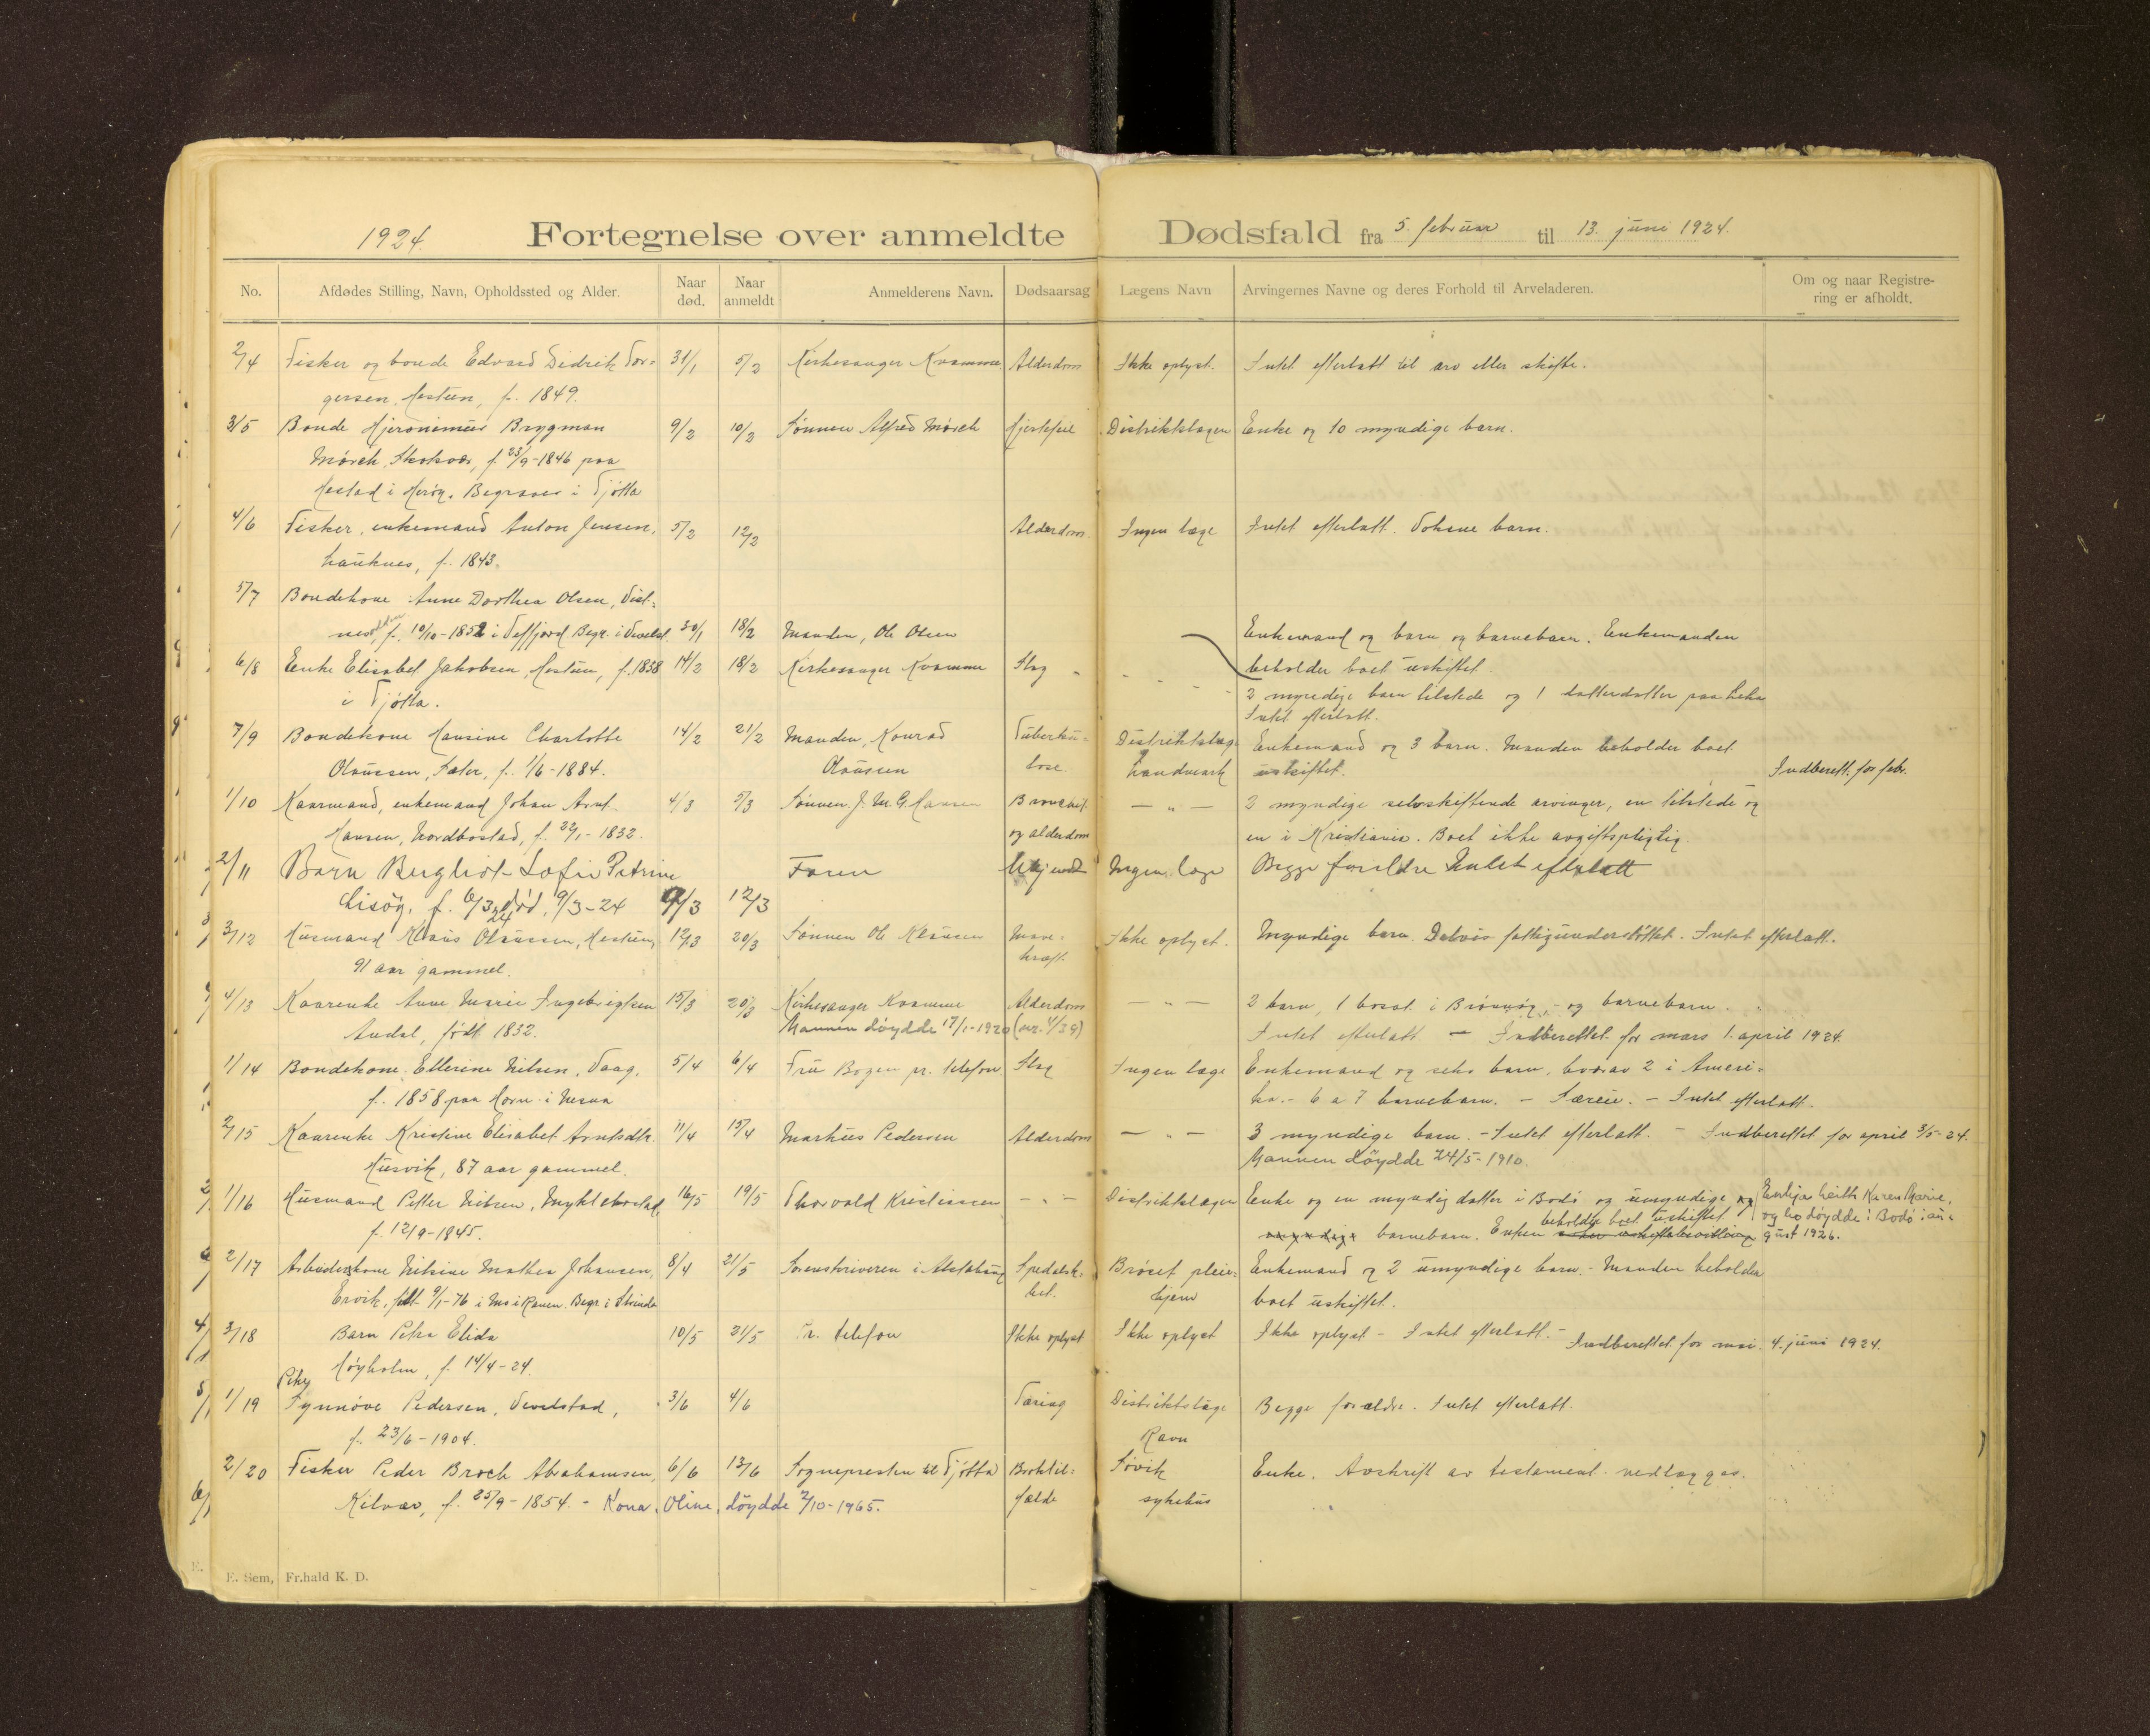 1924. Fortegnelse over anmeldte Dødsfald fra 5. februar til 13. juni 1924.
No. Afdødes Stilling, Navn, Opholdssted og Alder. Naar død. Naar anmeldt Anmelderens Navn. Dødsaarsag Lægens Navn Arvingernes Navne og deres Forhold til Arveladeren. Om og naar Registrering er afholdt.
2/4 Fisker og bonde Edvard Didrik Tor= 31/1 5/2 Kirkesanger Kvamme Alderdom Ikke oplyst. Intet efterlatt til arv eller skifte.
gersen, Hestun, f. 1849.
3/5 Bonde Hjeronimus Brygman 9/2 10/2 Sønnen Alfred Mørch Hjertefeil Distriktslægen Enke og 10 myndige barn.
Mørch, Skokvær, f. 23/9-1846 paa
Hestad i Herøy. Begraves i Tjøtta
4/6 Fisker, enkemand Anton Jensen, 5/2 12/2 Alderdom. Ingen læge Intet efterlatt. Voksne barn.
Hauknes, f. 1843.
5/7 Bondekone Anne Dorthea Olsen, Vist=
nes, f. 10/10-1852 i Velfjord. Begr. i Vevelst. 30/1 18/2 Manden, Ole Olsen Enkemand og barn og barnebarn. Enkemanden
beholder boet uskiftet.
6/8 Enke Elisabet Jakobsen, Hestun, f. 1838 14/2 18/2 Kirkesanger Kvamme Slag
i Tjøtta.
2 myndige barn tilstede og 1 datterdatter paa Leka
Intet efterlatt.
7/9 Bondekone Hansine Charlotte 14/2 21/2 Manden, Konrad Tuberku= Distriktslæge Enkemand og 3 barn. Manden beholder boet
Olaussen, Sæter, f. 1/6-1884. Olaussen lose. Landmark uskiftet. Indberett. for febr.
1/10 Kaarmand, enkemand Johan Arnt 4/3 5/3 Sønnen J. M. G. Hansen Bronchit — " — 2 myndige selvskiftende arvinger, en tilstede og
Hansen, Nordbostad, f. 22/1-1832. og alderdom en i Kristiania. Boet ikke avgiftspligtig.
2/11 Barn Bergliot Sofie Petrine Faren Ukjendt Ingen læge Begge forældre Intet efterlatt
Lisøy, f. 6/3 24 død, 9/3-24 9/3 12/3
3/12 Husmand Klaus Olaussen, Hestun, 12/3 20/3 Sønnen Ole Klausen Mave= Ikke oplyst. Myndige barn. Delvis fattigunderstøttet. Intet efterlatt.
91 aar gammel. kræft.
4/13 Kaarenke Anne Marie Ingebrigtsen 15/3 20/3 Kirkesanger Kvamme Alderdom — " — 2 barn, 1 bosat i Brønnøy, - og barnebarn.
Andal, født 1832. Mannen døydde 17/1-1920 Intet efterlatt — Indberettet for mars 1. april 1924.
1/14 Bondekone Ellerine Nilsen, Vaag, 5/4 6/4 Fru Bogen pr. telefon Slag Ingen læge Enkemand og seks barn, hvorav 2 i Ameri=
f. 1858 paa Horn i Nesna ka. - 6 a 7 barnebarn. - Særeie. - Intet efterlatt.
2/15 Kaarenke Kristine Elisabet Arntsdtr. 11/4 15/4 Markus Pedersen Alderdom — " — 3 myndige barn. - Intet efterlatt. - Indberettet for april 3/5-24.
Husvik, 87 aar gammel. Mannen døydde 24/5-1910.
1/16 Husmand Petter Nilsen, Myklebostad, 16/5 19/5 Thorvald Kristiansen — " — Distriktslægen Enke og en myndig datter i Bodø og umyndige Enkja heitte Karen Marie,
f. 12/9-1845. barnebarn. Enken beholder boet uskiftet og ho døydde i Bodø i au=
gust 1926.
2/17 Arbeiderkone Nilsine Mathea Johansen, 8/4 21/5 Sorenskriveren i Alstahaug Spedalsk= Brøset pleie= Enkemand og 2 umyndige barn. - Manden beholder
Ervik, født 9/1-76 i Mo i Ranen. Begr. i Strinda het. hjem boet uskiftet.
3/18 Barn Petra Elida 10/5 21/5 Pr. telefon Ikke oplyst Ikke oplyst Ikke oplyst - Intet efterlatt. - Indberettet for mai. 4. juni 1924.
Høyholm, f. 14/4-24.
1/19 Pike Synnøve Pedersen, Vevelstad, 3/6 4/6 Tæring Distriktslæge Begge forældre. Intet efterlatt.
f. 23/6-1904. Ravn
2/20 Fisker Peder Broch Abrahamsen, 6/6 13/6 Sognepresten til Tjøtta Broktil= Søvik Enke. Avskrift av testament vedlægges.
Kilvær, f. 25/9-1854. - Kona, Oline, døydde 2/10-1965. fælde sykehus
E. Sem, Fr.hald K. D.